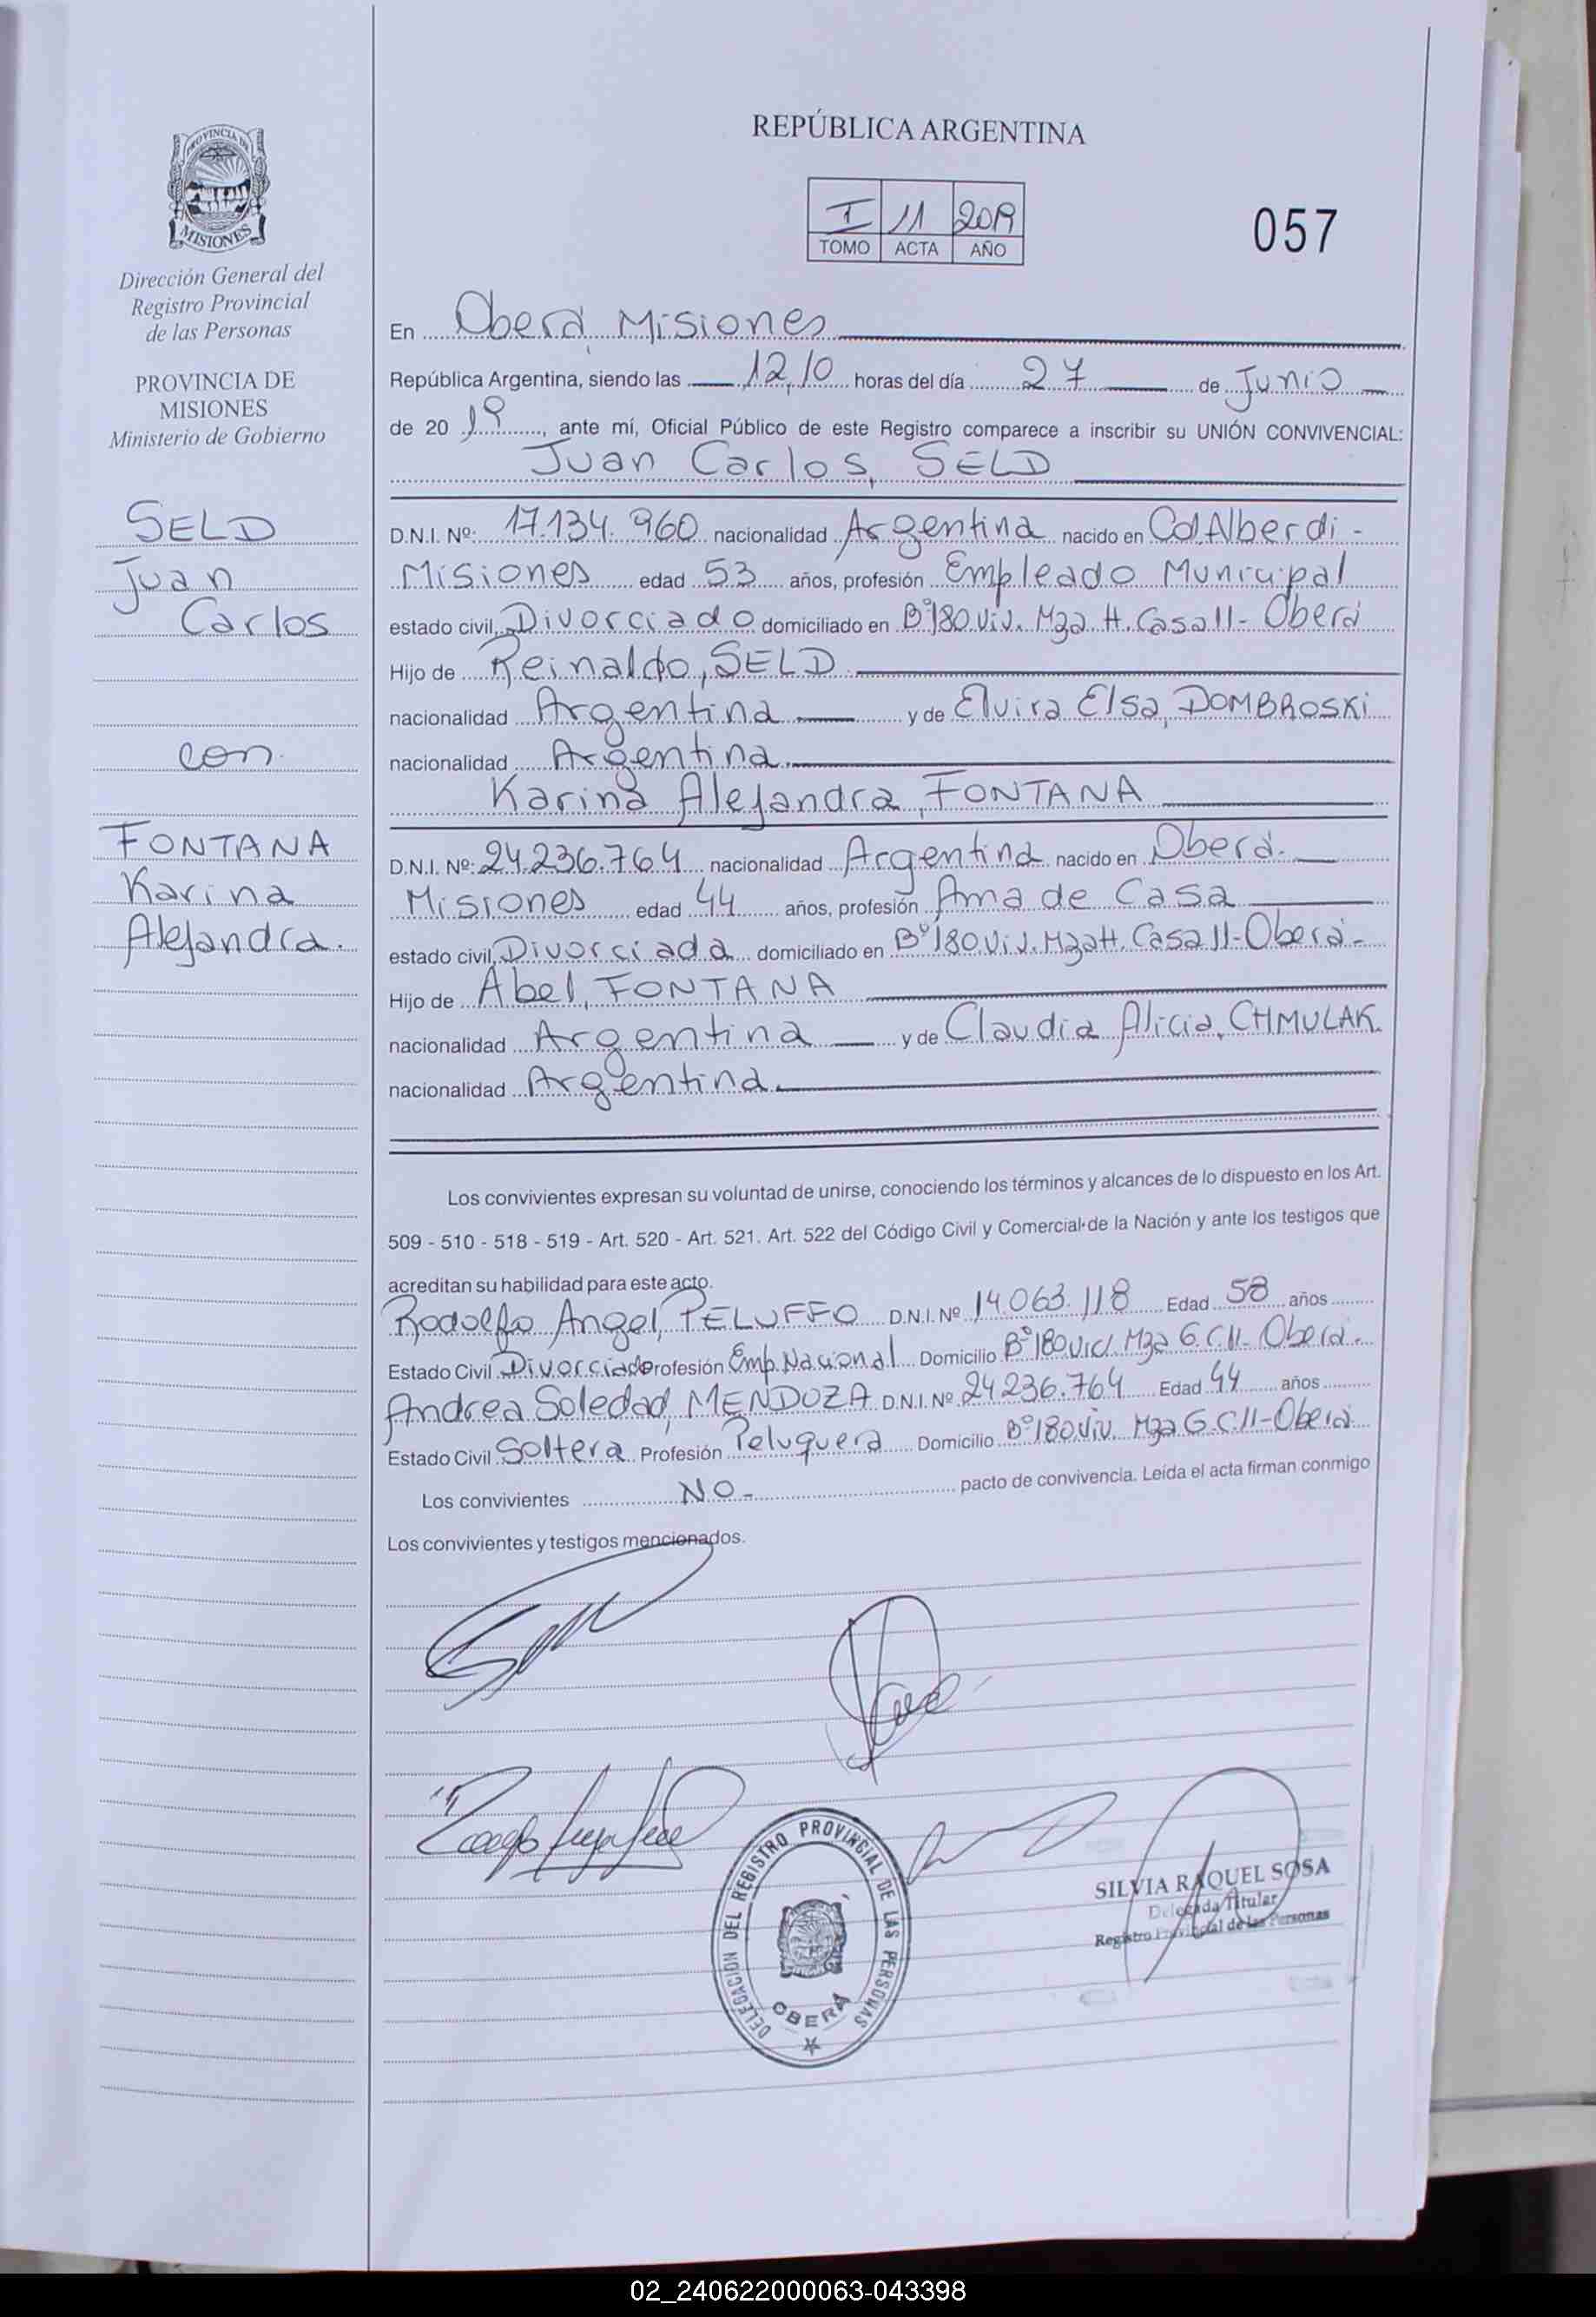 PROVINCIA DE
MISIONES
Dirección General del
Registro Provincial
de las Personas
PROVINCIA DE
MISIONES
Ministerio de Gobierno
SELD
Juan
Carlos
con
FONTANA
Karina
Alejandra.
REPÚBLICA ARGENTINA
I 11 2019
TOMO ACTA AÑO
057
En Oberá, Misiones
República Argentina, siendo las 12,10 horas del día 27 de Junio
de 20 19, ante mí, Oficial Público de este Registro comparece a inscribir su UNIÓN CONVIVENCIAL:
Juan Carlos, SELD
D.N.I. Nº: 17.134.960 nacionalidad Argentina nacido en Col. Alberdi -
Misiones edad 53 años, profesión Empleado Municipal
estado civil Divorciado domiciliado en Bº180 Viv. Mza H. Casa 11- Oberá
Hijo de Reinaldo, SELD
nacionalidad Argentina y de Elvira Elsa, DOMBROSKI
nacionalidad Argentina
Karina Alejandra, FONTANA
D.N.I. Nº: 24.236.764 nacionalidad Argentina nacido en Oberá.
Misiones edad 44 años, profesión Ama de Casa
estado civil Divorciada domiciliado en Bº180 Viv. Mza H. Casa 11-Oberá-
Hijo de Abel, FONTANA
nacionalidad Argentina y de Claudia Alicia, CHMULAK.
nacionalidad Argentina.
Los convivientes expresan su voluntad de unirse, conociendo los términos y alcances de lo dispuesto en los Art.
509 - 510 - 518 - 519 - Art. 520 - Art. 521. Art. 522 del Código Civil y Comercial de la Nación y ante los testigos que
acreditan su habilidad para este acto.
Rodolfo Angel, PELUFFO D.N.I. Nº 14.063.118 Edad 58 años
Estado Civil Divorciado profesión Emp. Nacional Domicilio Bº180 Viv. Mza G. C11- Oberá.
Andrea Soledad, MENDOZA D.N.I. Nº 24.236.764 Edad 44 años
Estado Civil Soltera Profesión Peluquera Domicilio Bº180 Viv. Mza G. C11-Oberá
Los convivientes NO- pacto de convivencia. Leída el acta firman conmigo
Los convivientes y testigos mencionados.
DELEGACION DEL REGISTRO PROVINCIAL DE LAS PERSONAS
OBERÁ
SILVIA RAQUEL SOSA
Delegada Titular
Registro Provincial de las Personas
02_240622000063-043398